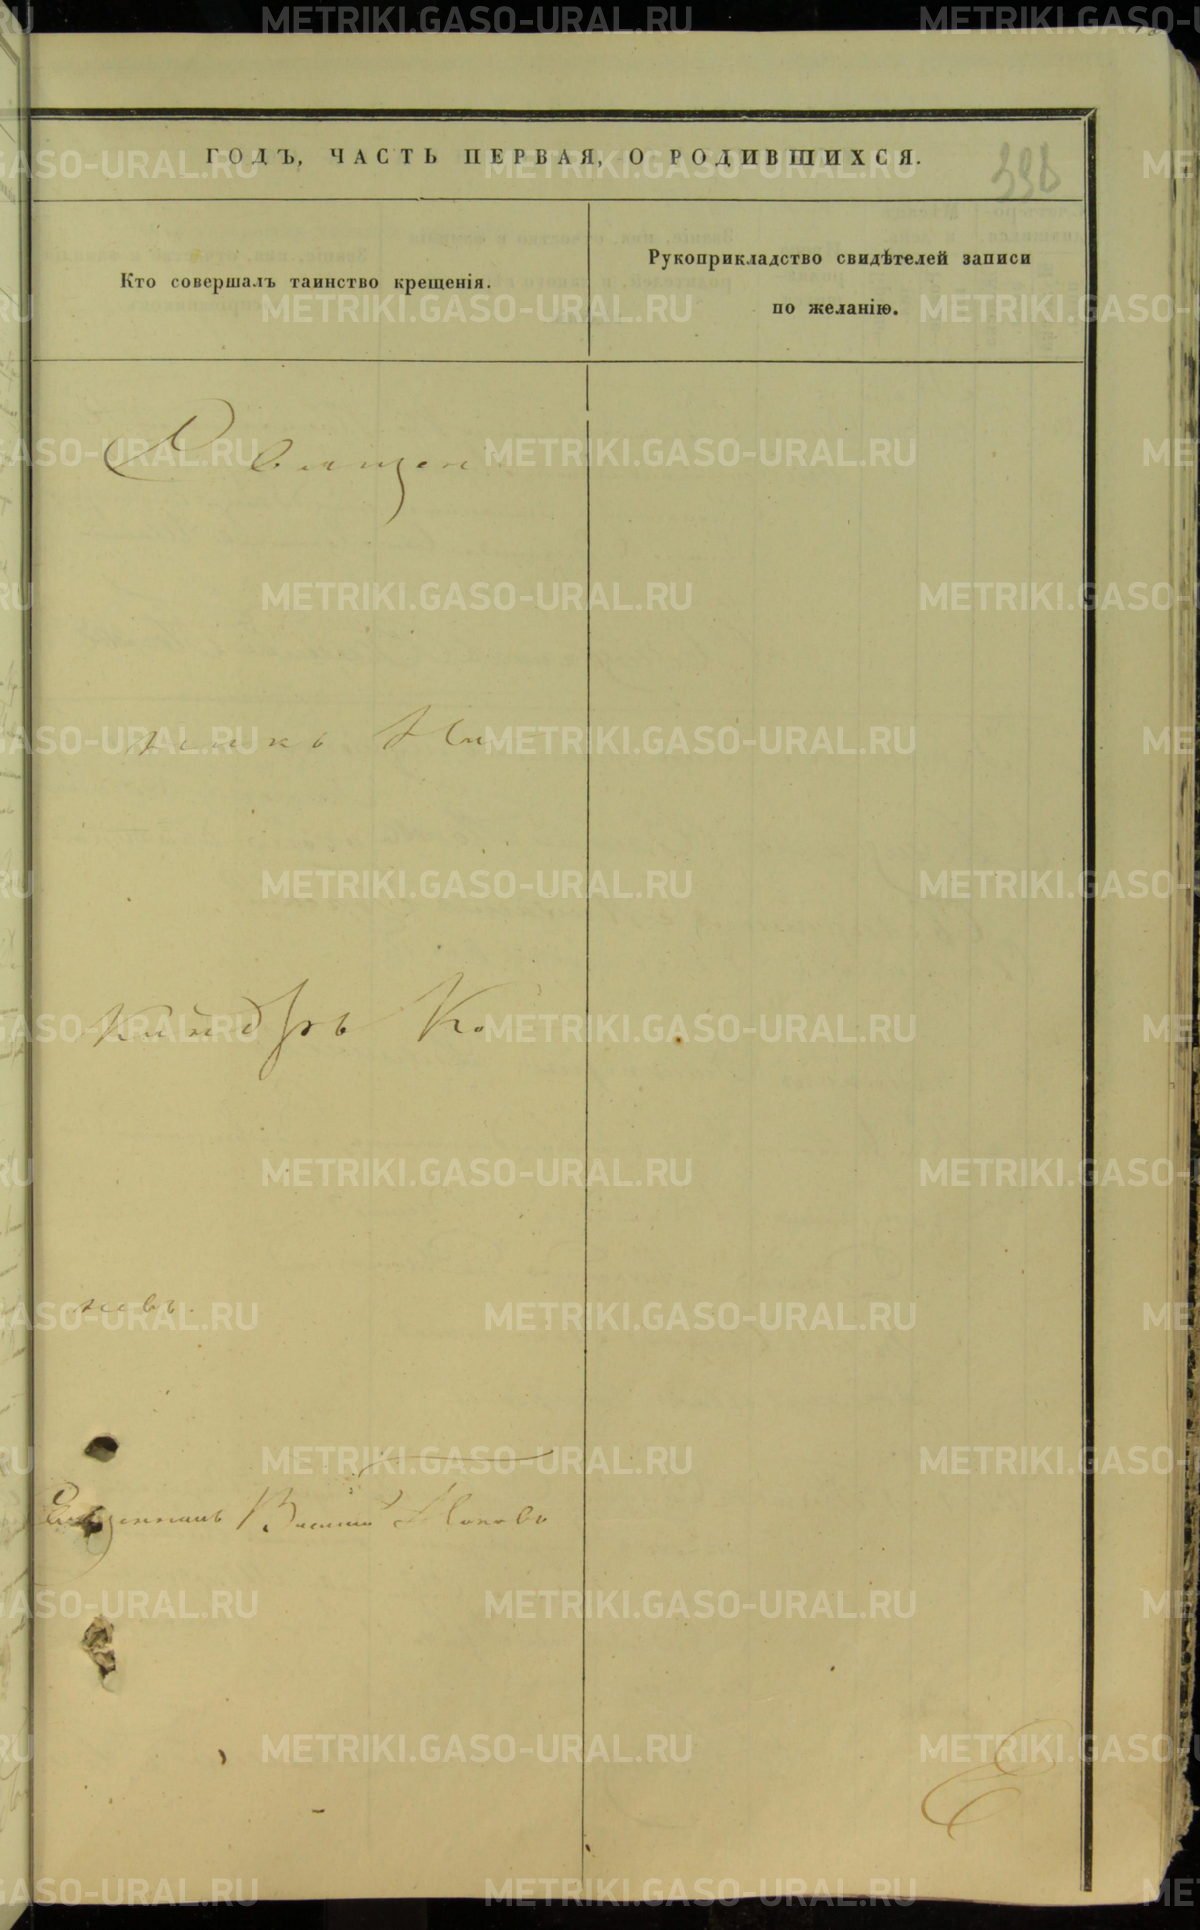 ГОДЪ, ЧАСТЬ ПЕРВАЯ, О РОДИВШИХСЯ.
Кто совершалъ таинство крещенія.
Рукоприкладство свидѣтелей записи
по желанію.
Священ
никъ Ни
кандръ Ко
невъ.
Священникъ Василій
METRIKI.GASO-URAL.RU